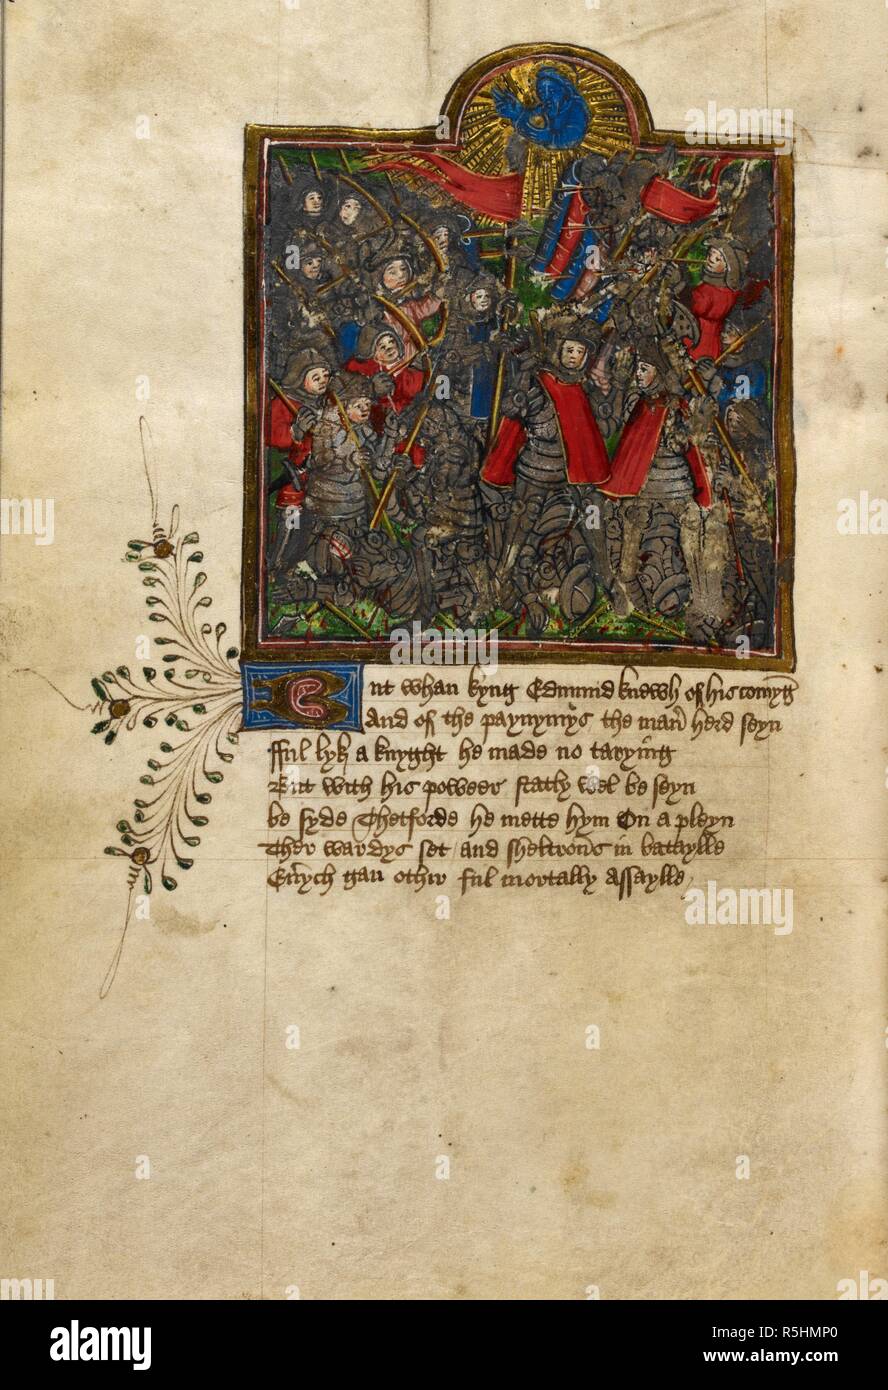 But whan kyng Edmund knewh of his comyng
And of the paynymys the maner herd seyn
Ful lyk a knyght he made no tarying
But with his poweer statly wel be seyn
be syde Thetforde he mette hym On a pleyn
Ther wardys set and sheltrons in bataylle
Everych gan othir ful mortally assaylle
alamy
Image ID: R5HMP0
www.alamy.com